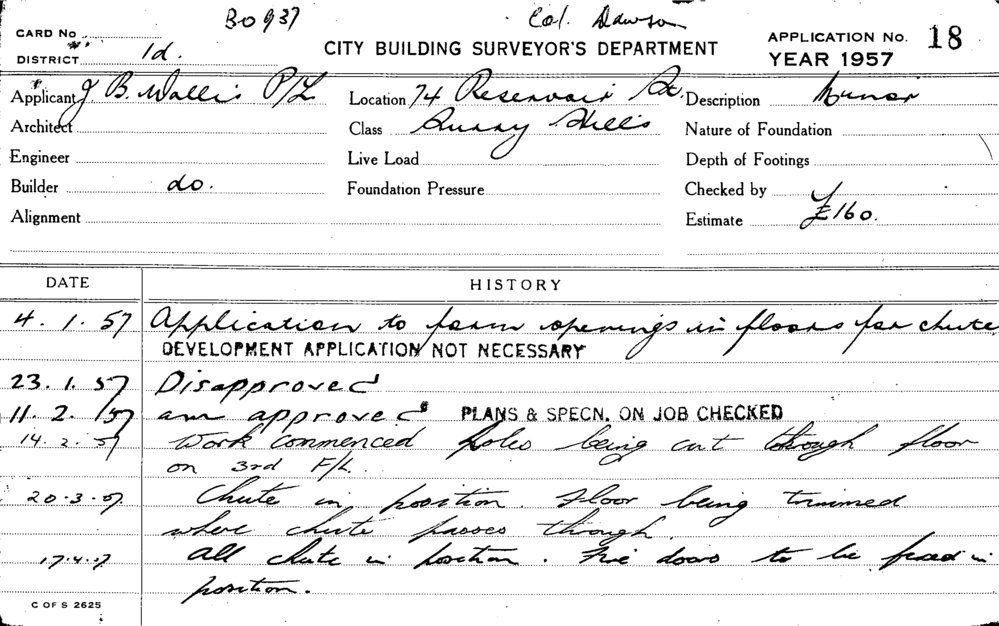 BO937 Col. Dawson
CARD No.
DISTRICT 1d.
CITY BUILDING SURVEYOR'S DEPARTMENT
APPLICATION No. 18
YEAR 1957
Applicant J. B. Wallis P/L Location 74 Reservoir St. Description Minor
Architect Class Surry Hills Nature of Foundation
Engineer Live Load Depth of Footings
Builder do. Foundation Pressure Checked by
Alignment Estimate £160.
DATE HISTORY
4.1.57 Application to form openings in floors for chute
DEVELOPMENT APPLICATION NOT NECESSARY
23.1.57 Disapproved
11.2.57 am approved PLANS & SPECN. ON JOB CHECKED
14.2.57 Work commenced holes being cut through floor
on 3rd F/L.
20.3.57 Chute in position. Floor being trimmed
where chute passes through.
17.4.57 All chute in position. Fire doors to be fixed in
position.
C OF S 2625